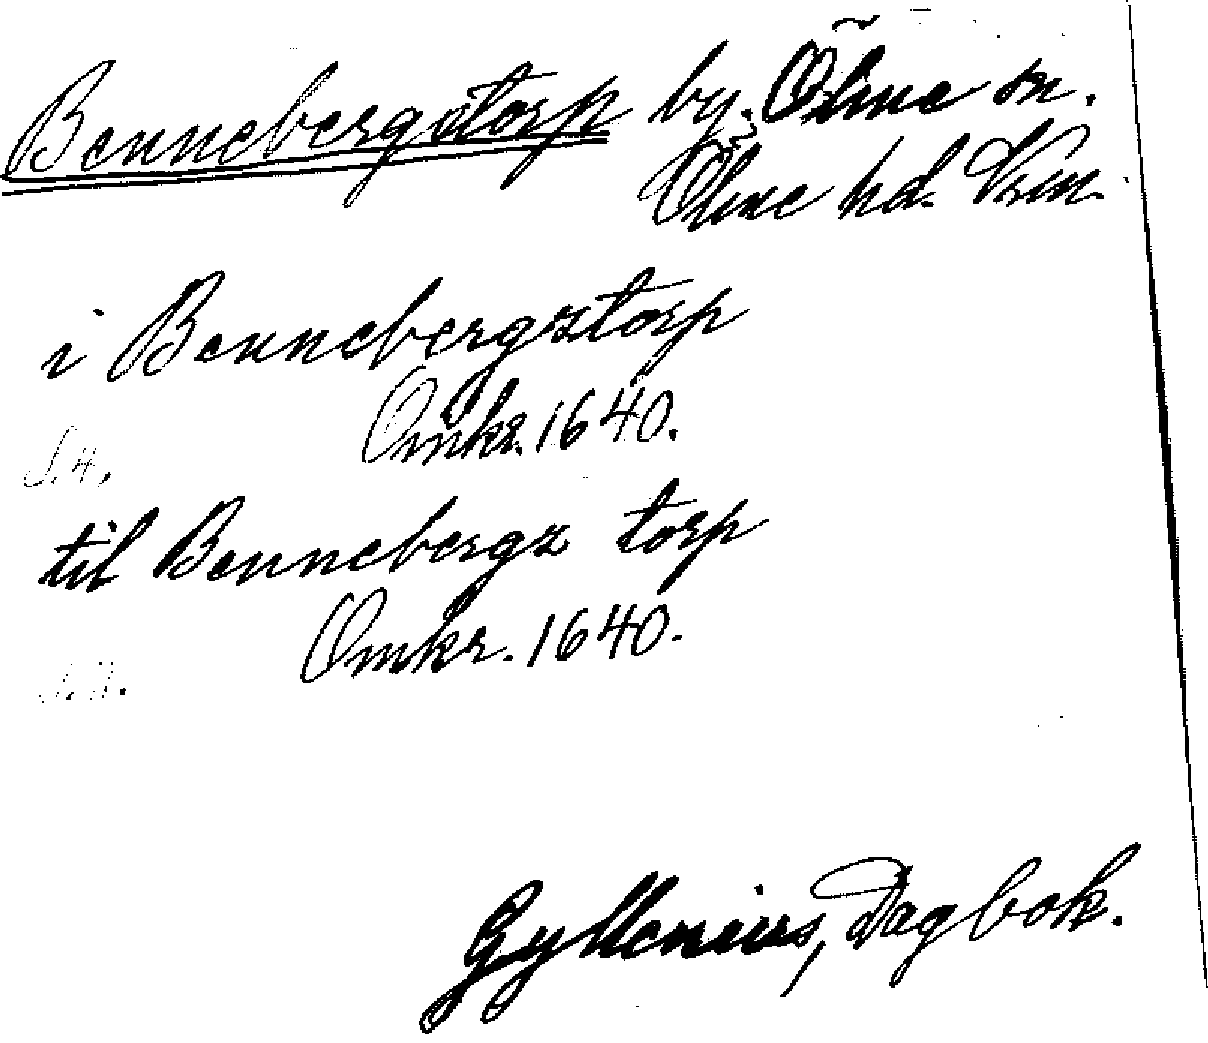 Bennebergstorp by. Ölme sn.
Ölme hd. Vrm.
i Bennebergztorp
Omkr. 1640.
S. 4.
til Bennebergz torp
Omkr. 1640.
Gyllenius, Dagbok.